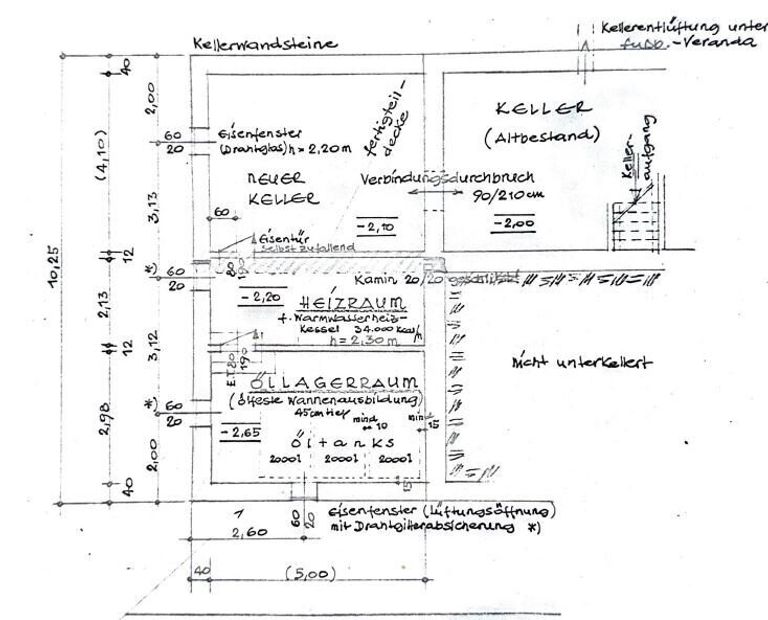 Kellerwandsteine
Kellerentlüftung unter
fußb.-Veranda
40
2,00
(4,10)
3,13
10,25
12
*)
2,13
3,12
12
2,98
*)
2,00
40
60
20
Eisenfenster
(Drahtglas) h = 2,20 m
fertigteil-
decke
KELLER
(Altbestand)
Keller-
aufgang
NEUER
KELLER
Verbindungsdurchbruch
90/210 cm
60
-2,10
-2,00
Eisentür
Selbst zufallend
80
190
60
20
Kamin 20/20
-2,20
HEIZRAUM
f. Warmwasserheiz-
kessel 34.000 Kcal/h
h = 2,30 m
nicht unterkellert
E.T. 80
190
ÖLLAGERRAUM
(ölfeste Wannenausbildung)
45 cm tief
mind
10
min
15
60
20
-2,65
Öltanks
2000 l 2000 l 2000 l
15
60
20
Eisenfenster (Lüftungsöffnung)
mit Drahtgitterabsicherung *)
1
2,60
40
(5,00)